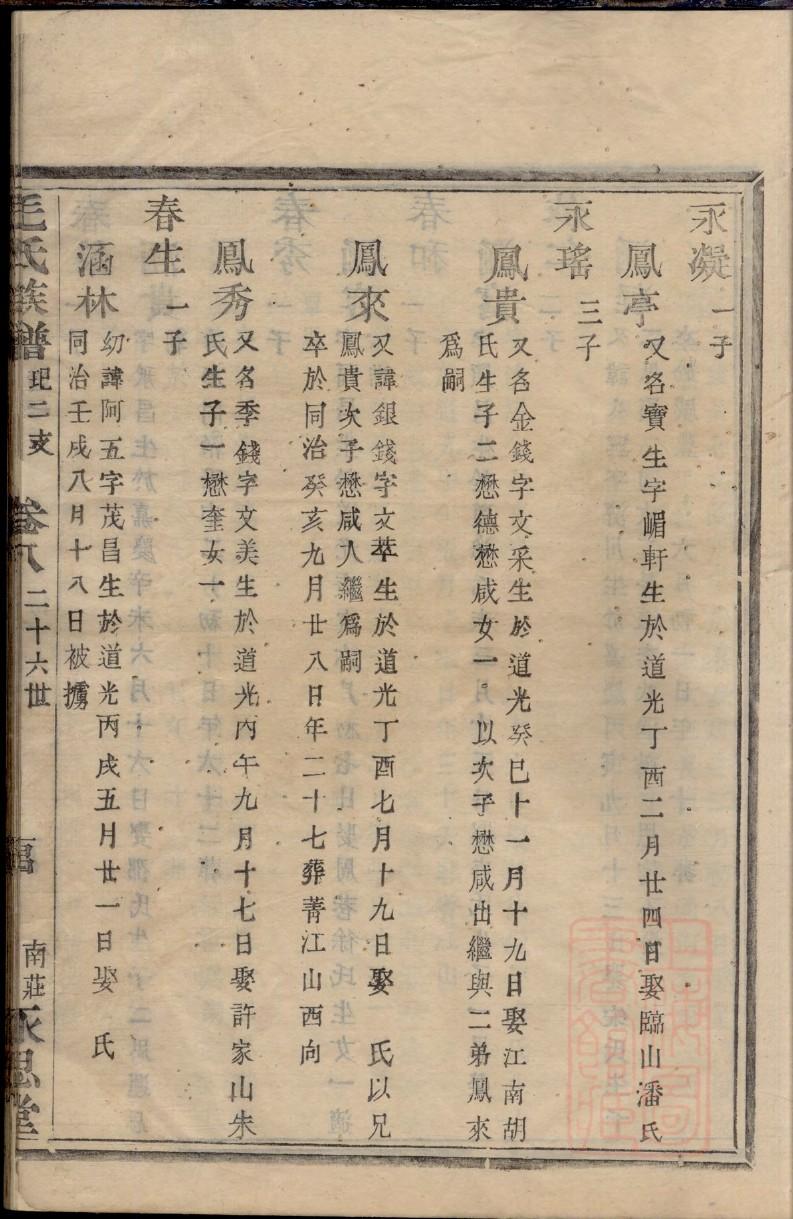 永凝一子
鳳亭又名寶生字嵋軒生於道光丁酉二月廿四日娶臨山潘氏
永瑤三子
鳳貴又名金錢字文采生於道光癸巳十一月十九日娶江南胡
氏生子二懋德懋咸女一以次子懋咸出繼與二弟鳳來
爲嗣
鳳來又諱銀錢字文萃生於道光丁酉七月十九日娶 氏以兄
鳳貴次子懋咸入繼爲嗣
卒於同治癸亥九月廿八日年二十七葬菁江山西向
鳳秀又名季錢字文美生於道光丙午九月十七日娶許家山朱
氏生子一懋奎女一
春生一子
涵林幼諱阿五字茂昌生於道光丙戌五月廿一日娶 氏
同治壬戌八月十八日被擄
毛氏族譜 玘二支 卷八 二十六世 南莊 永思堂